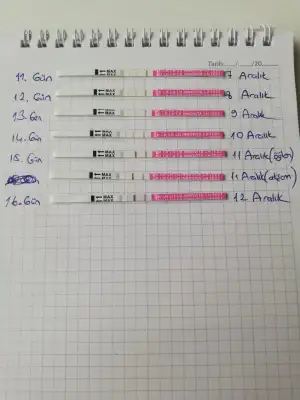 Tarih: ...../...../20.....
11. Gün MAX MAX 7 Aralık
12. Gün MAX MAX 8 Aralık
13. Gün MAX MAX 9 Aralık
14. Gün MAX MAX 10 Aralık
15. Gün MAX MAX 11 Aralık (öğlen)
MAX MAX 11 Aralık (akşam)
16. Gün MAX MAX 12 Aralık